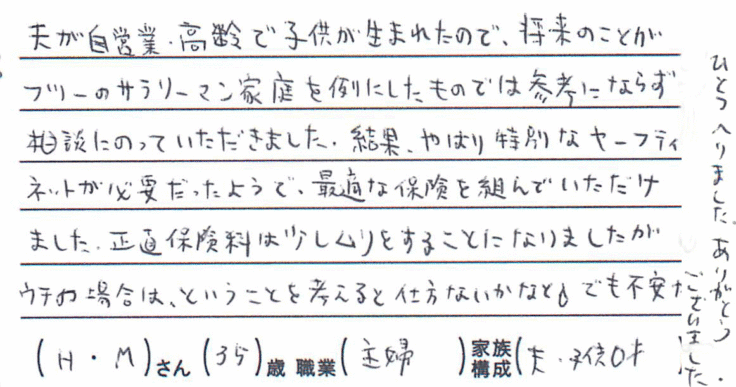 夫が自営業・高齢で子供が生まれたので、将来のことが
フツーのサラリーマン家庭を例にしたものでは参考にならず
相談にのっていただきました。結果、やはり特別なセーフティ
ネットが必要だったようで、最適な保険を組んでいただけ
ました。正直保険料は少しムリをすることになりましたが
ウチの場合は、ということを考えると仕方ないかなと。でも不安が
ひとつへりました。ありがとう
ございました。
(H・M)さん(35)歳 職業(主婦)家族構成(夫・子供0才)